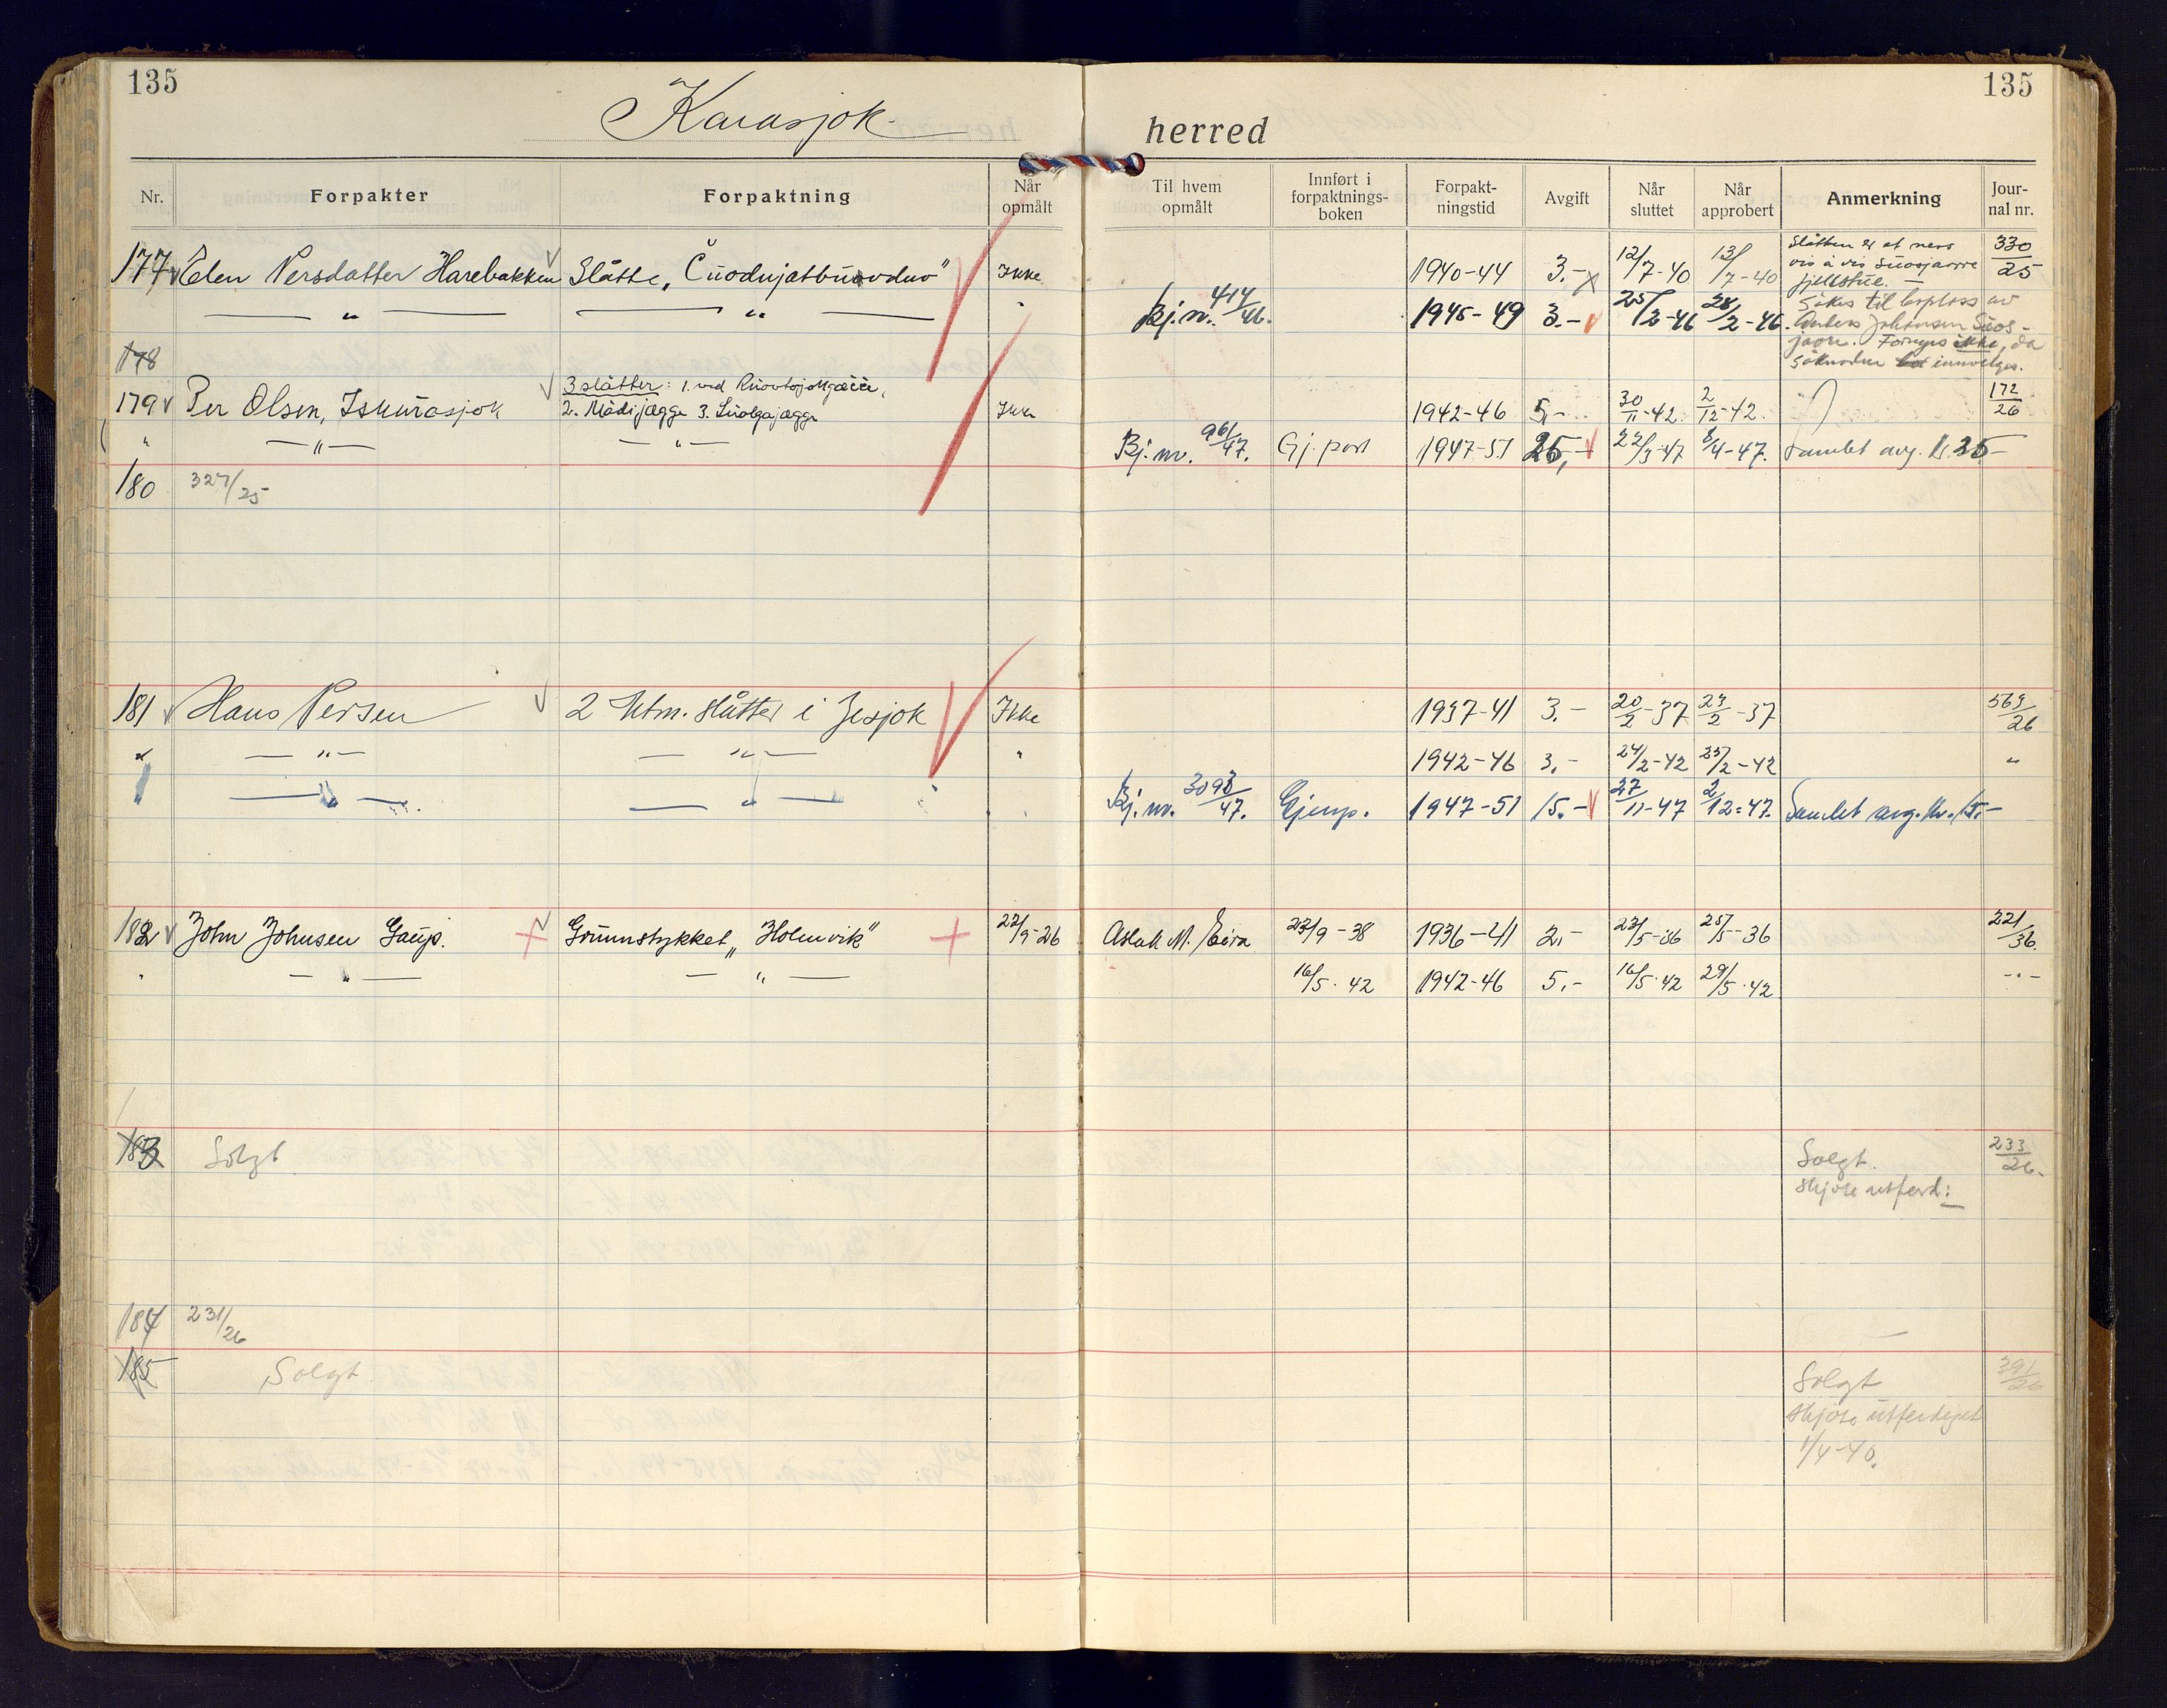 135
135
Karasjok herred
Nr. Forpakter Forpaktning Når opmålt Til hvem opmålt Innført i forpaktnings-boken Forpakt-ningstid Avgift Når sluttet Når approbert Anmerkning Jour-nal nr.
177 Elen Persdatter Harebakken Slåtte „ Ikke 1940-44 3.- 12/7-40 13/7-40 Slåtten er et ners vis à vis Suosjavrre fjellstue. 330/25
" — " — — " — " Bj.nr. 414/46. 1945-49 3.- 25/2-46 28/2-46. Søkes til av Anders Johansen Suos-javre. ikke, da søknaden innvilges.
178
179 Per Olsen, Iskurasjok 3 slåtter: 1. ved 2. Mådijægge 3. Luolgajægge Ikke 1942-46 5.- 30/11-42. 2/12-42. 172/26
" — " — — " — Bj.nr. 961/47. Gj. post 1947-51 25,- 22/3-47 8/4-47. Samlet avg. kr. 25-
180 327/25
181 Hans Persen 2 utm. slåtter i Jesjok Ikke 1937-41 3.- 20/2-37 23/2-37 563/26
" — " — — " — " 1942-46 3.- 24/2-42 25/2-42 "
" — " — — " — " Bj.nr. 3093/47. Gjenp. 1947-51 15.- 27/11-47 2/12-47. Samlet avg. kr. 15.-
182 John Johnsen Gaup. Grunnstykket „Holmvik" 22/9-26 Aslak M. Eira 23/9-38 1936-41 2.- 23/5-36 25/5-36 221/36.
" — " — — " — 16/5-42 1942-46 5.- 16/5-42 29/5-42 -"-
183 Solgt Solgt. 233/26.
skjøte utferd:
184 231/26
185 Solgt. Solgt 391/26
skjøte utferdiget
1/4-40.